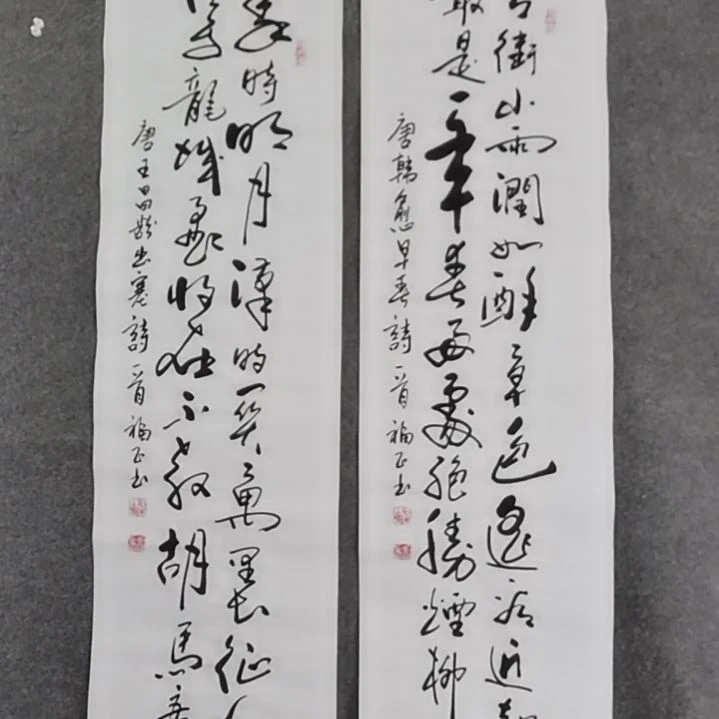 街小雨潤如酥草色遙看近却
最是一年春好處絕勝煙柳
唐韓愈早春詩一首 福正書
秦時明月漢時關萬里長征人
使龍城飛將在不教胡馬度
唐王昌齡出塞詩一首 福正書